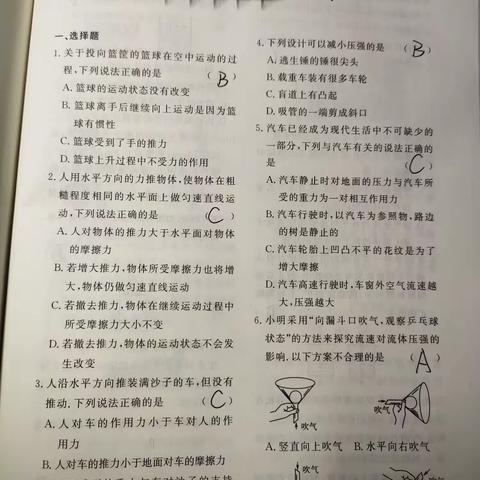 一、选择题
1. 关于投向篮筐的篮球在空中运动的过
程,下列说法正确的是 ( B )
A. 篮球的运动状态没有改变
B. 篮球离手后继续向上运动是因为篮
球有惯性
C. 篮球受到了手的推力
D. 篮球上升过程中不受力的作用
2. 人用水平方向的力推物体,使物体在粗
糙程度相同的水平面上做匀速直线运
动,下列说法正确的是 ( C )
A. 人对物体的推力大于水平面对物体
的摩擦力
B. 若增大推力,物体所受摩擦力也将增
大,物体仍做匀速直线运动
C. 若撤去推力,物体在继续运动过程中
所受摩擦力大小不变
D. 若撤去推力,物体的运动状态不会发
生改变
3. 人沿水平方向推装满沙子的车,但没有
推动. 下列说法正确的是 ( C )
A. 人对车的作用力小于车对人的作
用力
B. 人对车的推力小于地面对车的摩擦力
4. 下列设计可以减小压强的是 ( B )
A. 逃生锤的锤很尖头
B. 载重车装有很多车轮
C. 盲道上有凸起
D. 吸管的一端剪成斜口
5. 汽车已经成为现代生活中不可缺少的
一部分,下列与汽车有关的说法正确的
是 ( C )
A. 汽车静止时对地面的压力与汽车所
受的重力为一对相互作用力
B. 汽车行驶时,以汽车为参照物,路边
的树是静止的
C. 汽车轮胎上凹凸不平的花纹是为了
增大摩擦
D. 汽车高速行驶时,车窗外空气流速越
大,压强越大
6. 小明采用“向漏斗口吹气,观察乒乓球
状态”的方法来探究流速对流体压强的
影响. 以下方案不合理的是 ( A )
吹气
吹气
A. 竖直向上吹气 B. 水平向右吹气
吹气
吹气